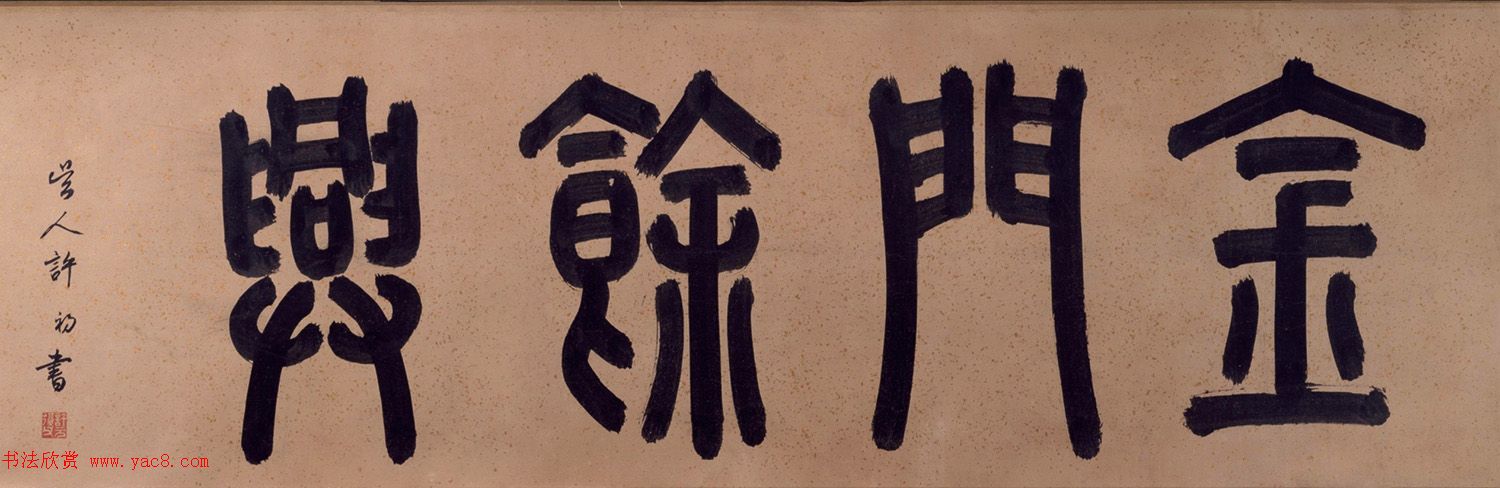 金門餘興
吴人許初書
书法欣赏 www.yac8.com